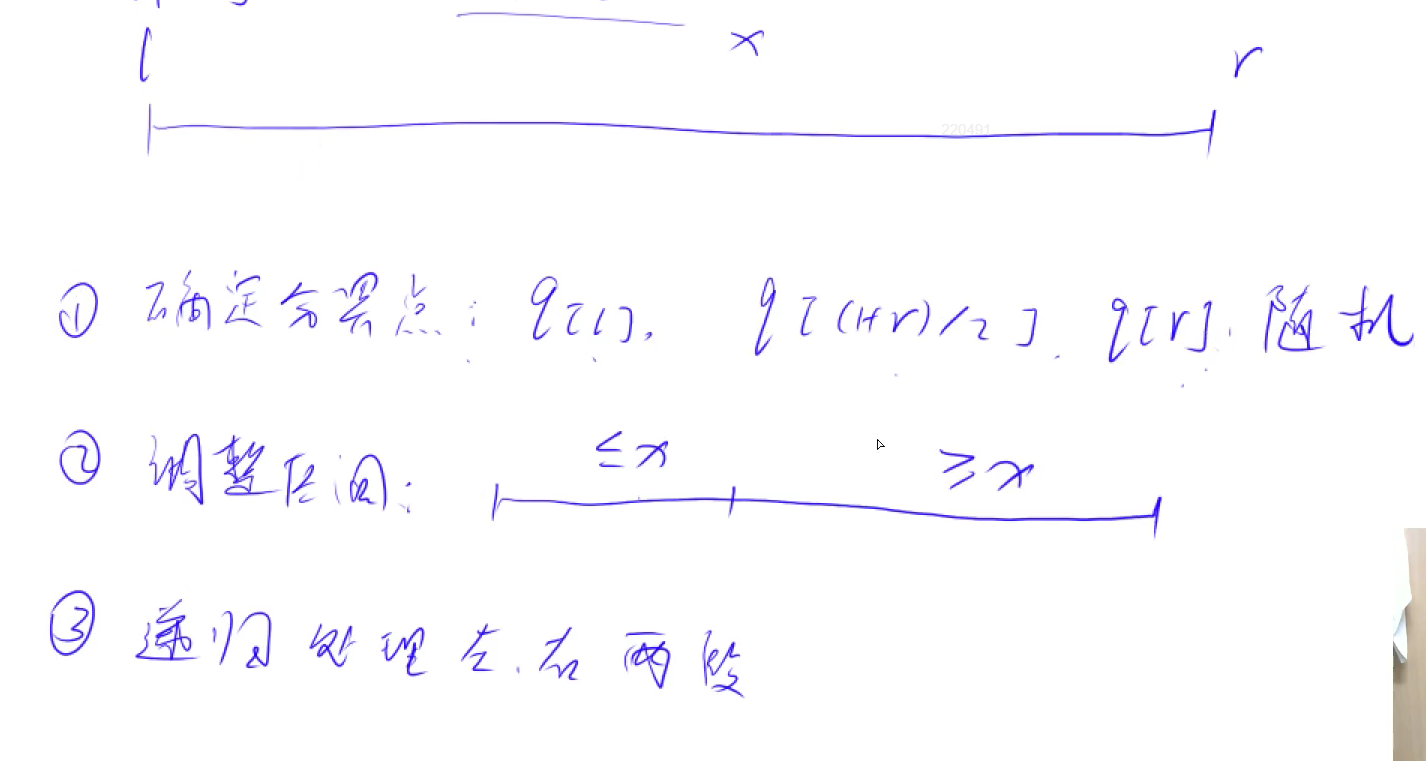 l x r
220491
① 确定分界点: q[l], q[(l+r)/2], q[r], 随机
② 调整区间: ≤x ≥x
③ 递归处理左、右两段